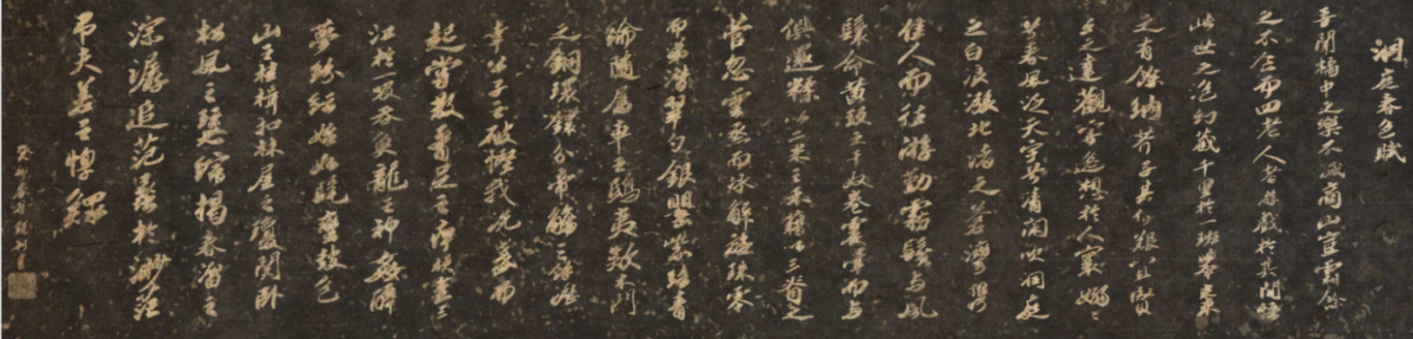 洞庭春色賦
吾聞橘中之樂不減商山豈霜餘
之不食而四老人者游戲於其間悟
此世之泡幻藏千里於一班舉棗葉
之有餘納芥子其何艱宜賢
王之達觀寄逸想於人寰嫋〻
兮春風泛天宇兮清閑吹洞庭
之白浪漲北渚之蒼灣攜
佳人而往游勤霧鬢與風
鬟命黄頭之千奴卷震澤而與
俱還糅以二米之禾藉以三脊之
菅忽雲烝而冰解旋珠零
而涕潸翠勺銀罌紫絡青
綸隨屬車之鴟夷款木門
之銅鐶分帝觴之餘瀝
幸公子之破慳我洗盞而
起嘗散腰足之痹頑盡三
江於一吸吞魚龍之神姦醉
夢紛紜始如髦蠻鼓包
山之桂楫扣林屋之瓊關卧
松風之瑟縮揭春溜之
淙潺追范蠡於渺茫
弔夫差之惸鰥